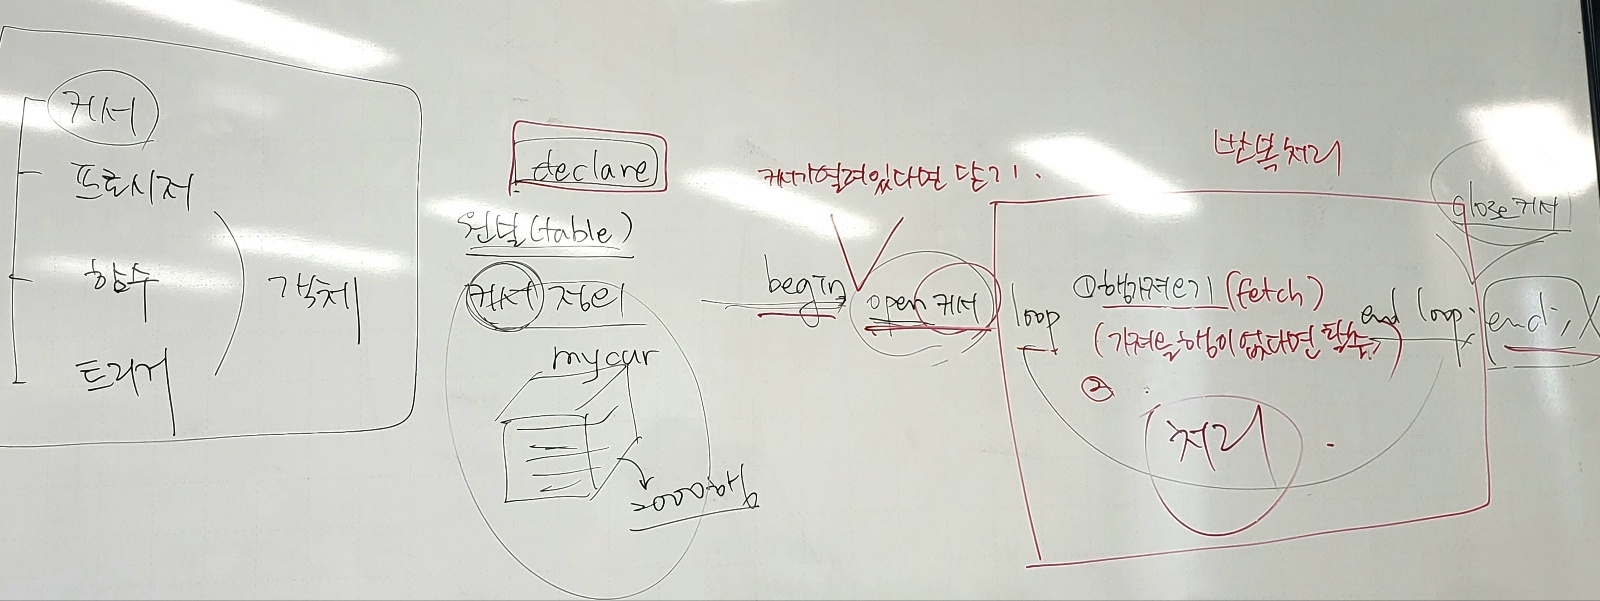 커서
프로시저
함수
트리거
객체
declare
원본(table)
커서 정의
mycur
2000행
커서가 열려있다면 닫기.
begin
open 커서
반복처리
loop
① 행가져오기 (fetch)
(가져올 행이 없다면 탈출;)
②
처리
end loop;
close 커서
end;